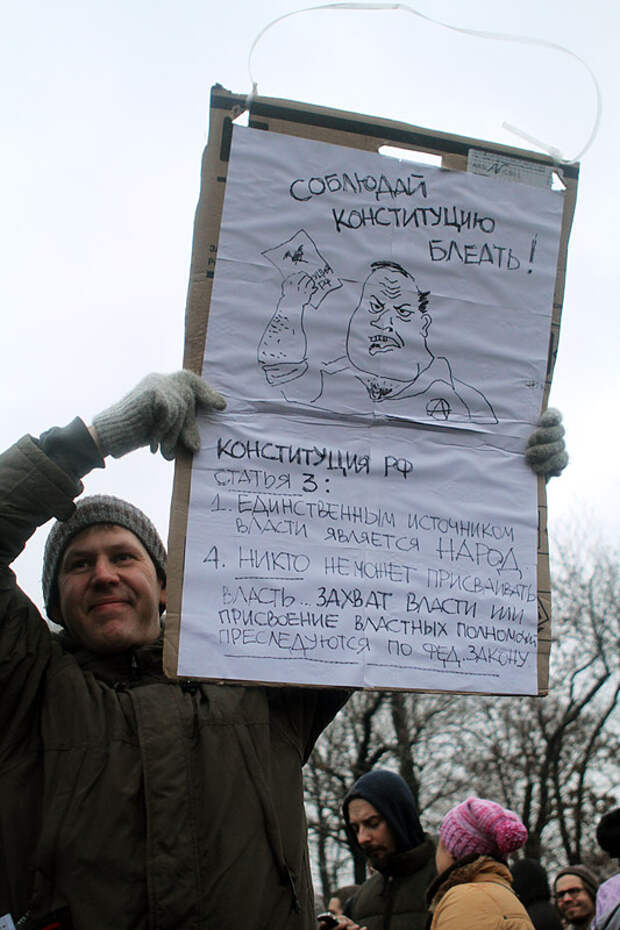 СОБЛЮДАЙ
КОНСТИТУЦИЮ
БЛЕАТЬ!
РФ
КОНСТИТУЦИЯ РФ
СТАТЬЯ 3:
1. ЕДИНСТВЕННЫМ ИСТОЧНИКОМ
ВЛАСТИ ЯВЛЯЕТСЯ НАРОД.
4. НИКТО НЕ МОЖЕТ ПРИСВАИВАТЬ
ВЛАСТЬ... ЗАХВАТ ВЛАСТИ ИЛИ
ПРИСВОЕНИЕ ВЛАСТНЫХ ПОЛНОМОЧ
ПРЕСЛЕДУЮТСЯ ПО ФЕД. ЗАКОНУ